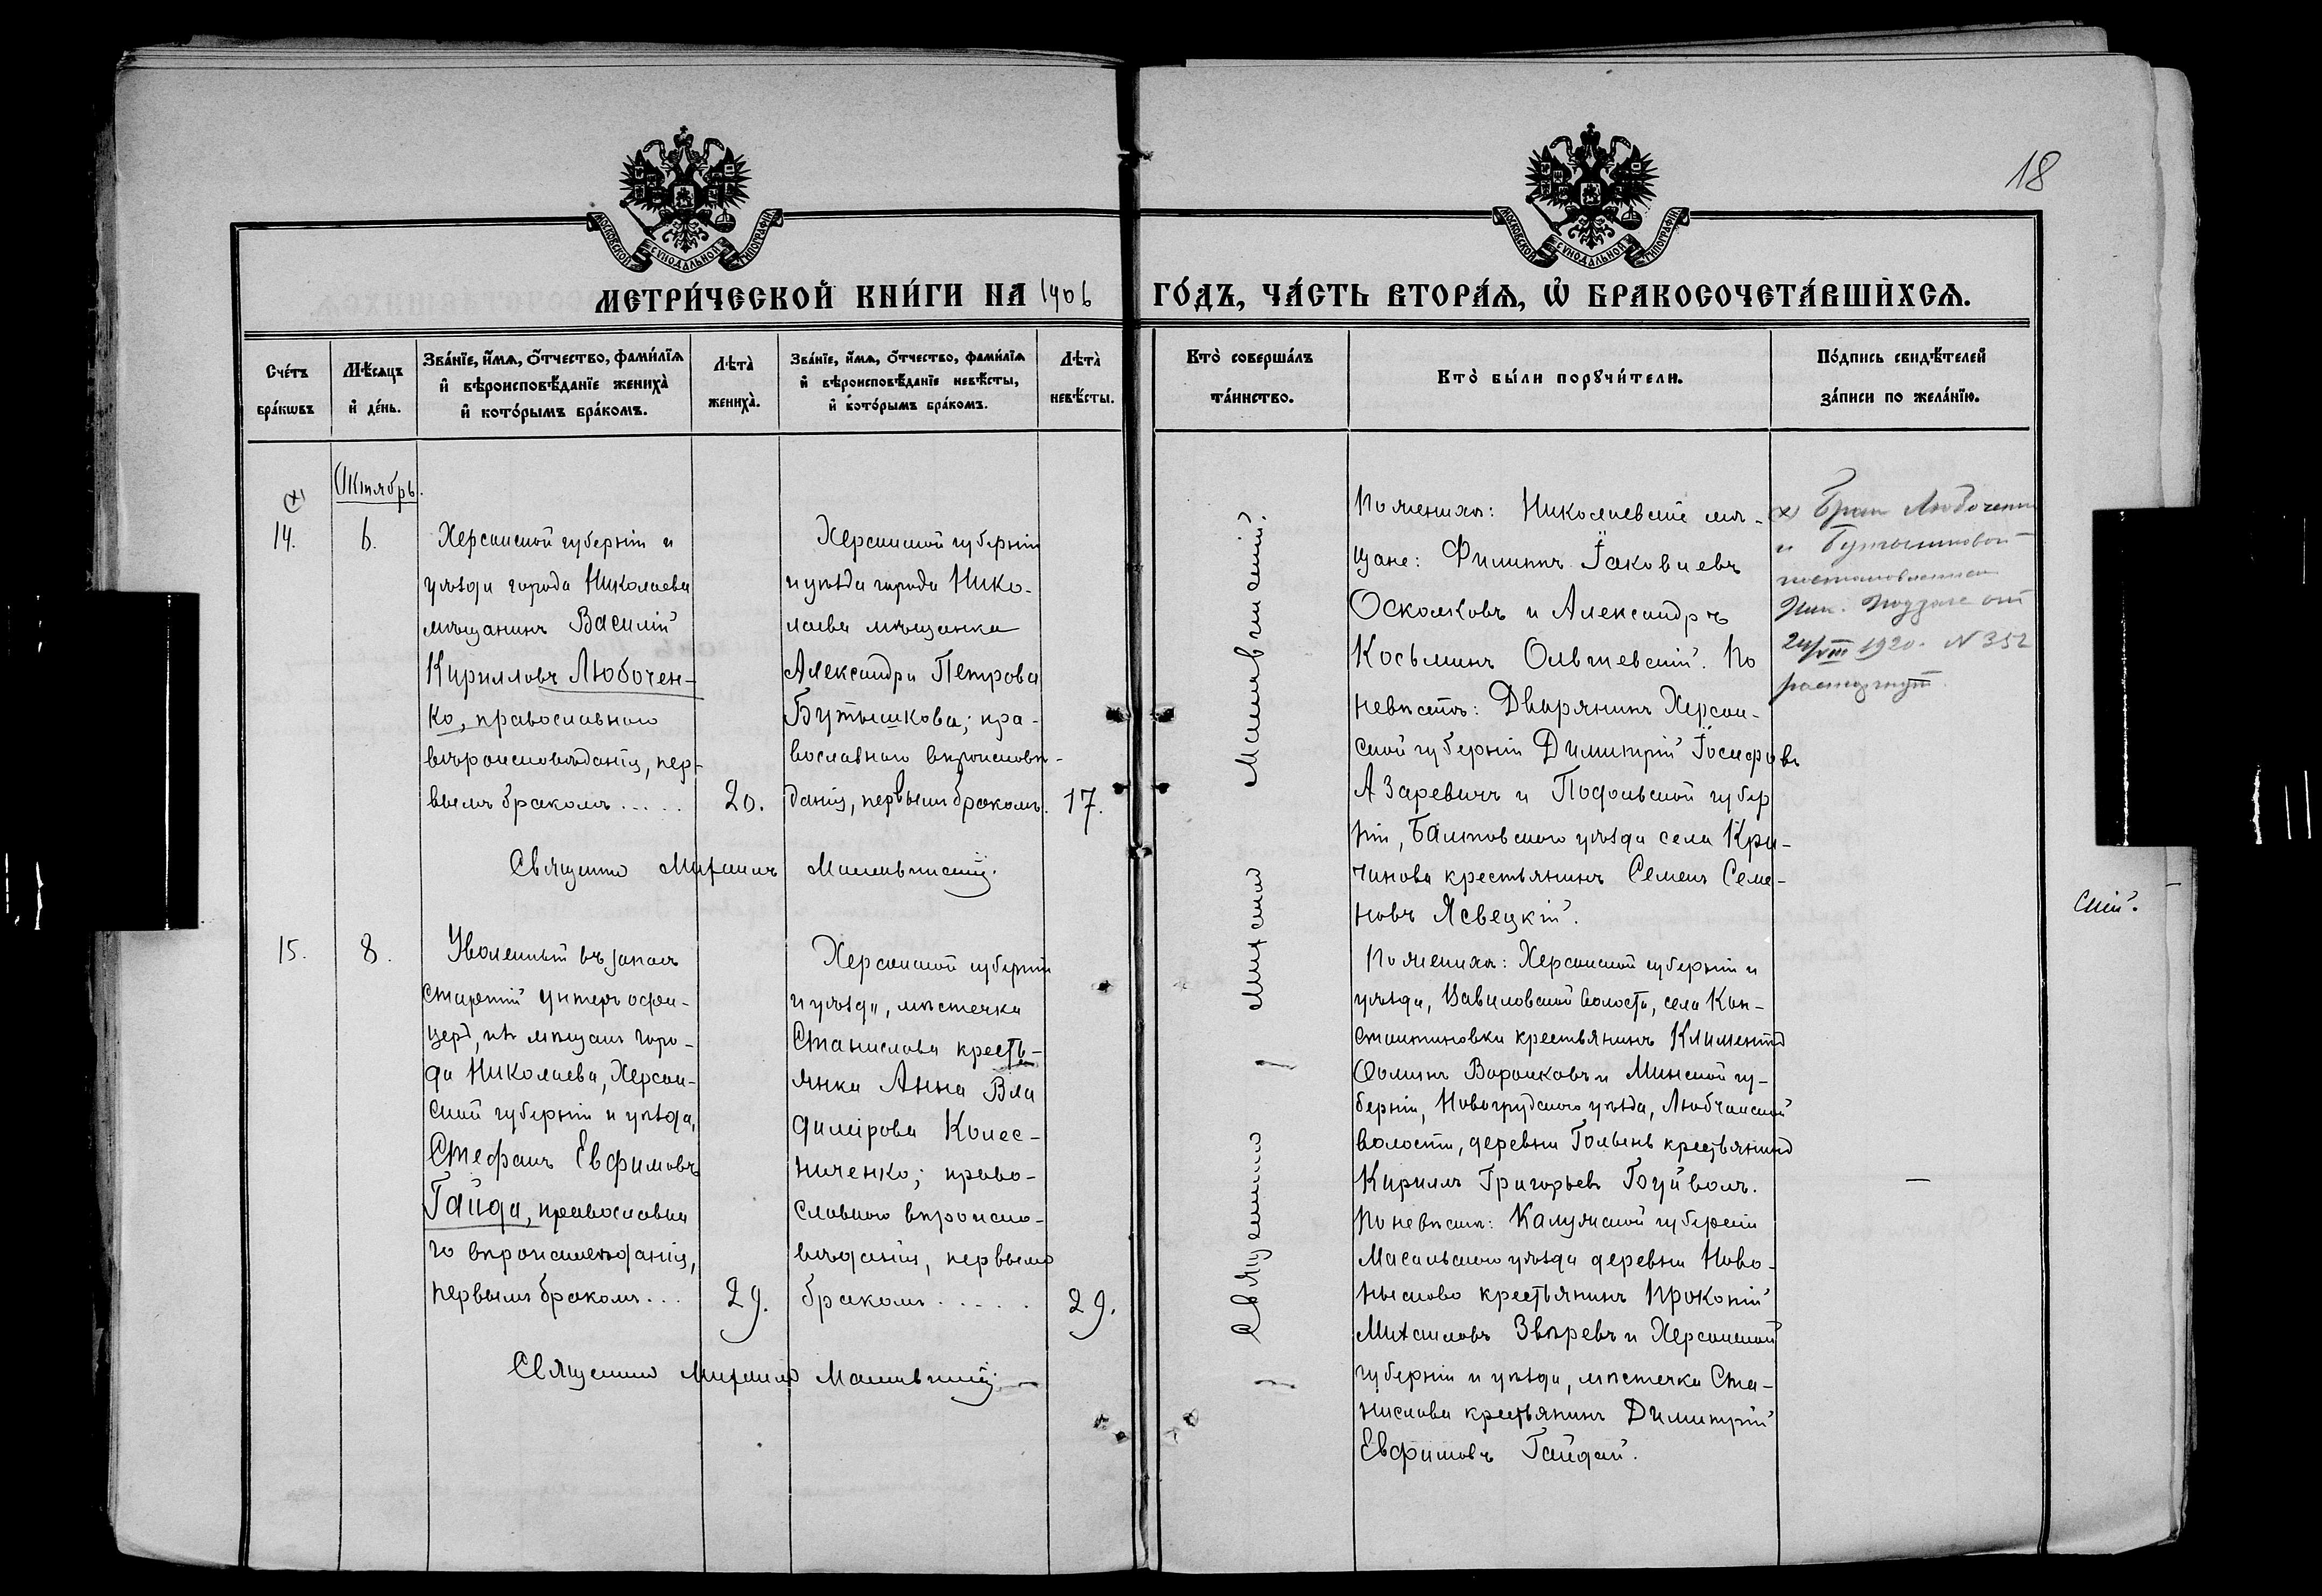 18
МОСКОВСКОЙ СѴНОДАЛЬНОЙ ТИПОГРАФІИ
МОСКОВСКОЙ СѴНОДАЛЬНОЙ ТИПОГРАФІИ
МЕТРИ́ЧЕСКОЙ КНИ́ГИ НА 1906 ГО́ДЪ, ЧА́СТЬ ВТОРА́Ѧ, Ѽ БРАКОСОЧЕТА́ВШИХСѦ.
Сче́тъ
бра́кѡвъ
Мѣ́сѧцъ
и҆ де́нь.
Зва́нїе, и҆́мѧ, ѻ҆́тчество, фами́лїѧ
и҆ вѣроисповѣ́данїе жениха̀
и҆ кото́рымъ бра́комъ.
Лѣта̀
жениха̀.
Зва́нїе, и҆́мѧ, ѻ҆́тчество, фами́лїѧ
и҆ вѣроисповѣ́данїе невѣ́сты,
и҆ кото́рымъ бра́комъ.
Лѣта̀
невѣ́сты.
Кто̀ соверша́лъ
та́инство.
Кто̀ бы́ли порꙋчи́тели.
По́дпись свидѣ́телей
за́писи по жела́нїю.
Октябрь.
(х)
14.
6.
Херсонской губерніи и
уѣзда города Николаева
мѣщанинъ Василій
Кирилловъ Любочен-
ко, православнаго
вѣроисповѣданія, пер-
вымъ бракомъ.....
20.
Херсонской губерніи
и уѣзда города Нико-
лаева мѣщанка
Александра Петрова
Бутышкова; пра-
вославнаго вѣроисповѣ-
данія, первымъ бракомъ.
17.
Священникъ Михаилъ
Священникъ Михаилъ
По женихѣ: Николаевскіе мѣ-
щане: Филиппъ Іаковлевъ
Осколковъ и Александръ
Косьминъ Ольшевскій. По
невѣстѣ: Дворянинъ Херсон-
ской губерніи Димитрій Іосифовъ
Азаревичъ и Подольской губер
ніи, Балтовскаго уѣзда села Кри-
чинова крестьянинъ Семенъ Семе-
новъ Ясвецкій.
(х) Брак Любоченко
и Бутышковой
постановлением
от
24/VIII 1920. N 352
расторгнут.
скій.
15.
8.
Уволенный въ запасъ
старшій унтеръ офи-
церъ, изъ мѣщанъ горо-
да Николаева, Херсон-
ской губерніи и уѣзда,
Стефанъ Евфимовъ
Гайда, православна
го вѣроисповѣданія,
первымъ бракомъ...
29.
Херсонской губерніи
и уѣзда, мѣстечка
Станислава кресть-
янка Анна Вла
димірова Колес-
ниченко; право-
славнаго вѣроиспо-
вѣданія, первымъ
бракомъ.....
29.
Священникъ Михаилъ
По женихѣ: Херсонской губерніи и
уѣзда, волости, села Кон-
стантиновки крестьянинъ Климентъ
Ѳоминъ Воронковъ и Минской гу-
берніи, Новогрудскаго уѣзда, Любчанской
волости, деревни крестьянинъ
Кириллъ Григорьевъ
По невѣстѣ: Калужской губерніи
Масальскаго уѣзда деревни Ново-
крестьянинъ Прокопій
Михаиловъ Звѣревъ и Херсонской
губерніи и уѣзда, мѣстечка Ста-
нислава крестьянинъ Димитрій
Евфимовъ Гайдай.
—